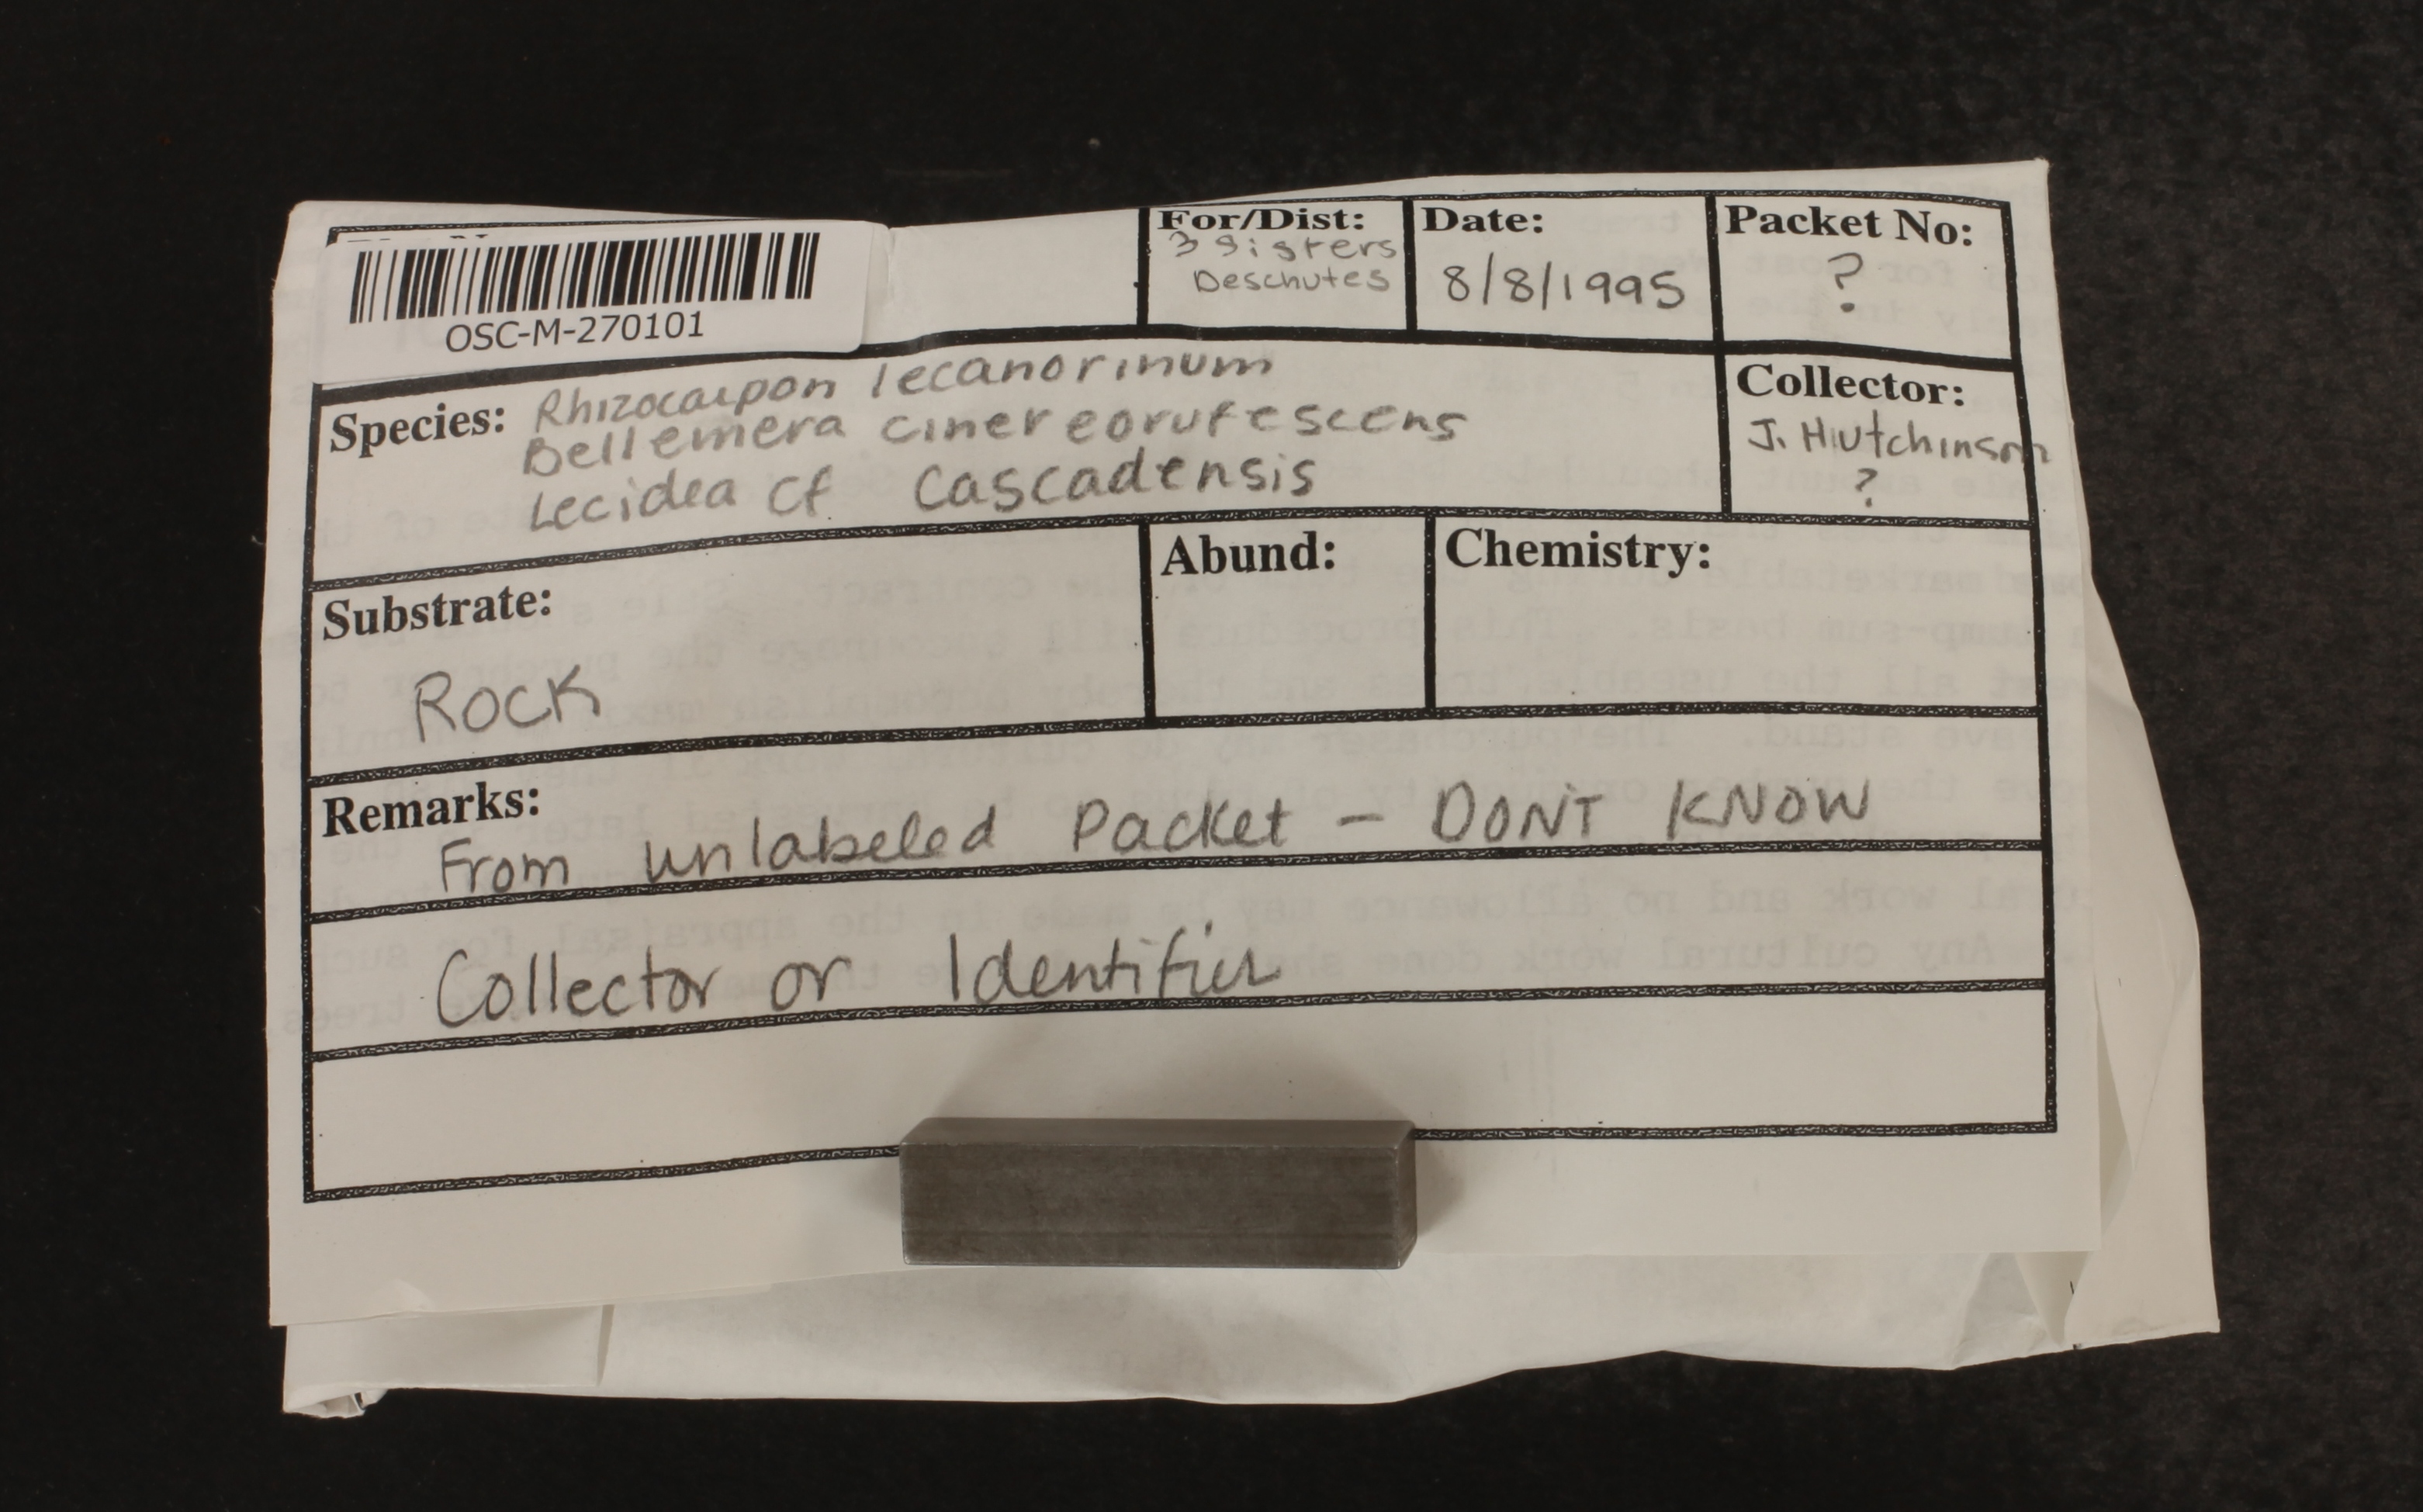 OSC-M-270101
For/Dist:
3 Sisters
Deschutes
Date:
8/8/1995
Packet No:
?
Species: Rhizocarpon lecanorinum
Bellemera cinereorufescens
Lecidea cf Cascadensis
Collector:
J. Hutchinson
?
Substrate:
Rock
Abund:
Chemistry:
Remarks:
From unlabeled Packet - DONT KNOW
Collector or Identifier